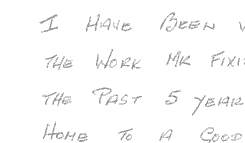 I HAVE BEEN
THE WORK MR
THE PAST 5 YEARS
HOME TO A GOOD